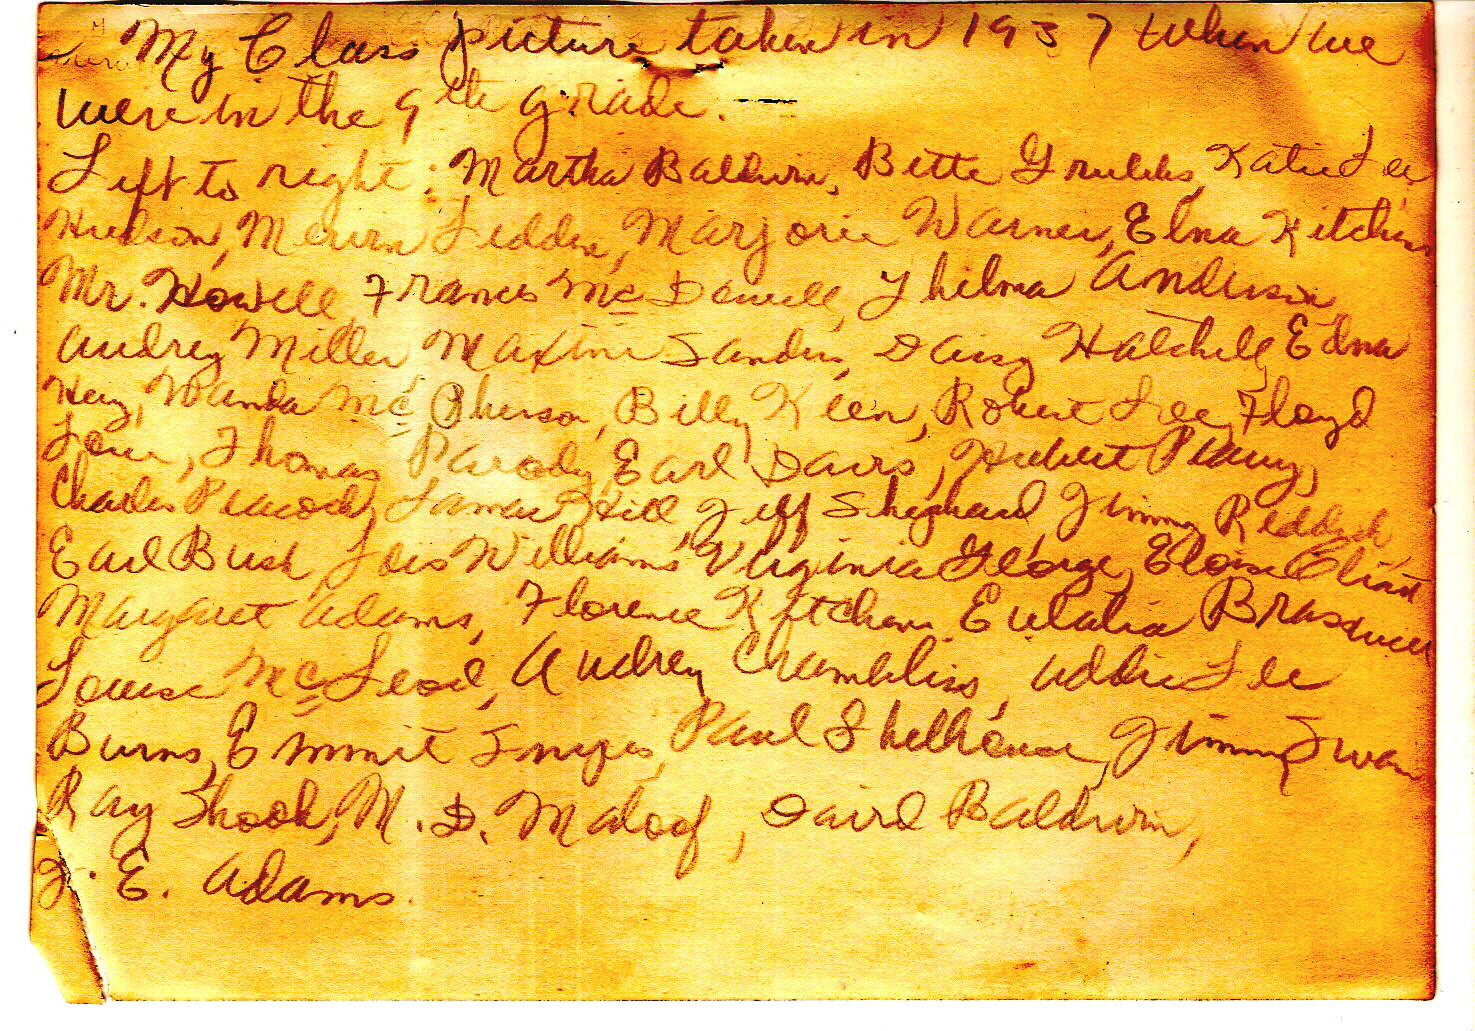 My Class picture taken in 1937 when we
were in the 9th grade.
Left to right: Martha Baldwin, Bette Grubbs, Katie Lee
Hudson, Merim Feddin, Marjorie Warner, Elna Kitchens
Mr. Howell, Frances McDaniell, Thelma Anderson,
Audrey Miller Maxine Sanders, Daisy Hatchell, Edna
Hay, Wanda McPherson, Billy Keen, Robert Lee, Floyd
Thomas Parody, Earl Davis, Hubert Peavy,
Charles Peacock, Lamar Hill, Jeff Shephard, Jimmy Reddick
Earl Bush, Lois Williams, Virginia George, Eloise Eliott
Margaret Adams, Florence Kitchens Eulalia
Louise McLeod, Audrey Chambliss, Addie Lee
Burns, Emmit Paul Shelhouse, Jimmy Swan
Ray Shook, M. D. Maloof, David Baldwin,
E. Adams.